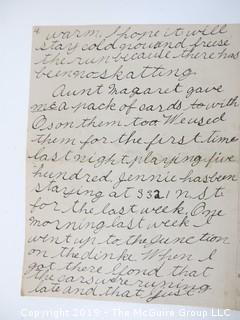 4
warm. I hope it will
stay cold now and freese
the run because there has
been no skatting.
Aunt Nagaret gave
me a pack of cards to with
O's on them too We used
them for the first time
last night playing five
hundred. Jennie has been
staying at 3321 N. St
for the last week. One
morning last week I
went up to the Junction
on the dinke. When I
got there I fond that
the cars were runing
late and that just
Copyright 2019 - The McGuire Group LLC